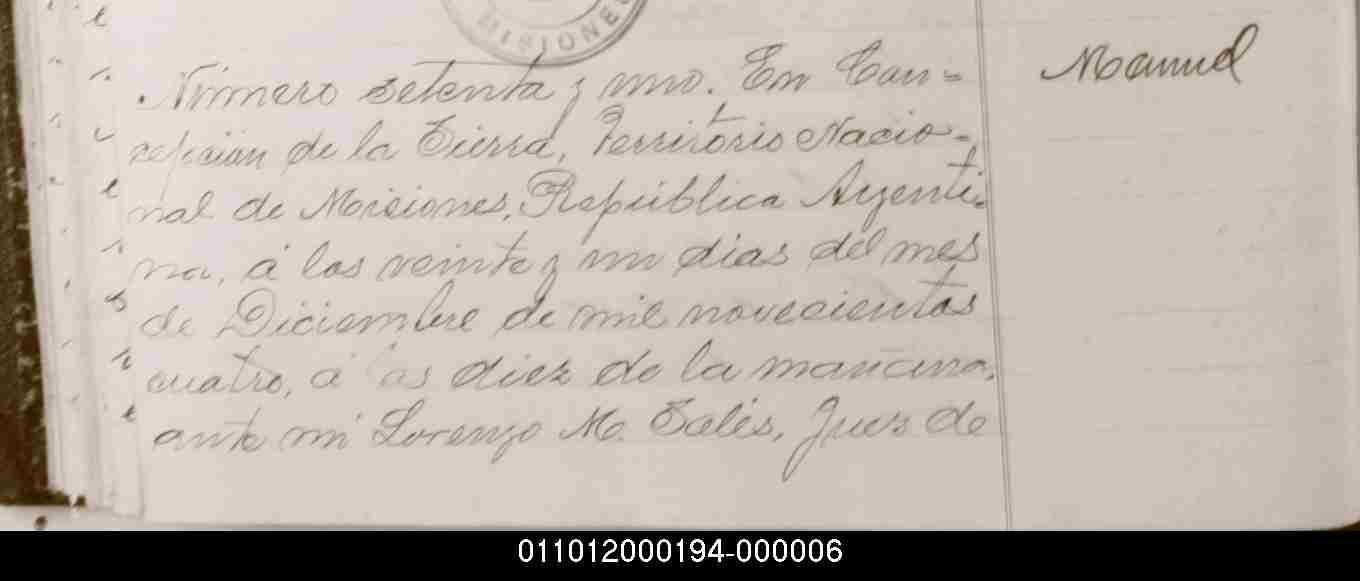 MISIONES
Número setenta y uno. En Con=
cepción de la Sierra, Territorio Nacio=
nal de Misiones, República Argenti=
na, á los veinte y un dias del mes
de Diciembre de mil novecientos
cuatro, á las diez de la mañana,
ante mi Lorenzo M. Selés, Juez de
Manuel
011012000194-000006